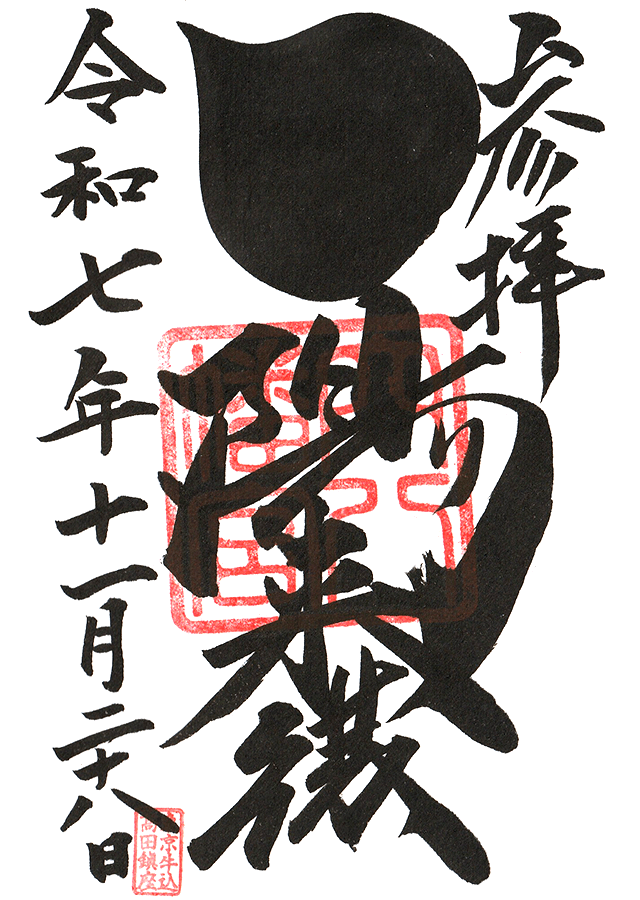 参拝
一陽來復
令和七年十一月二十八日
東京牛込
高田鎮座